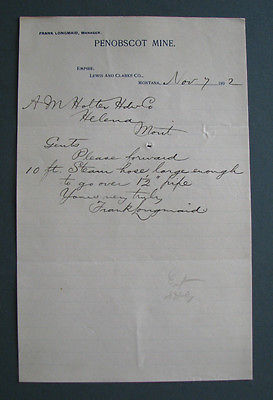 FRANK LONGMAID, MANAGER.
PENOBSCOT MINE.
EMPIRE,
LEWIS AND CLARKE CO.,
MONTANA, Nov 7 1902
A M Holter Hdw Co
Helena
Mont
Gents
Please forward
10 ft. Steam hose large enough
to go over 1½" pipe
Yours very truly
Frank Longmaid